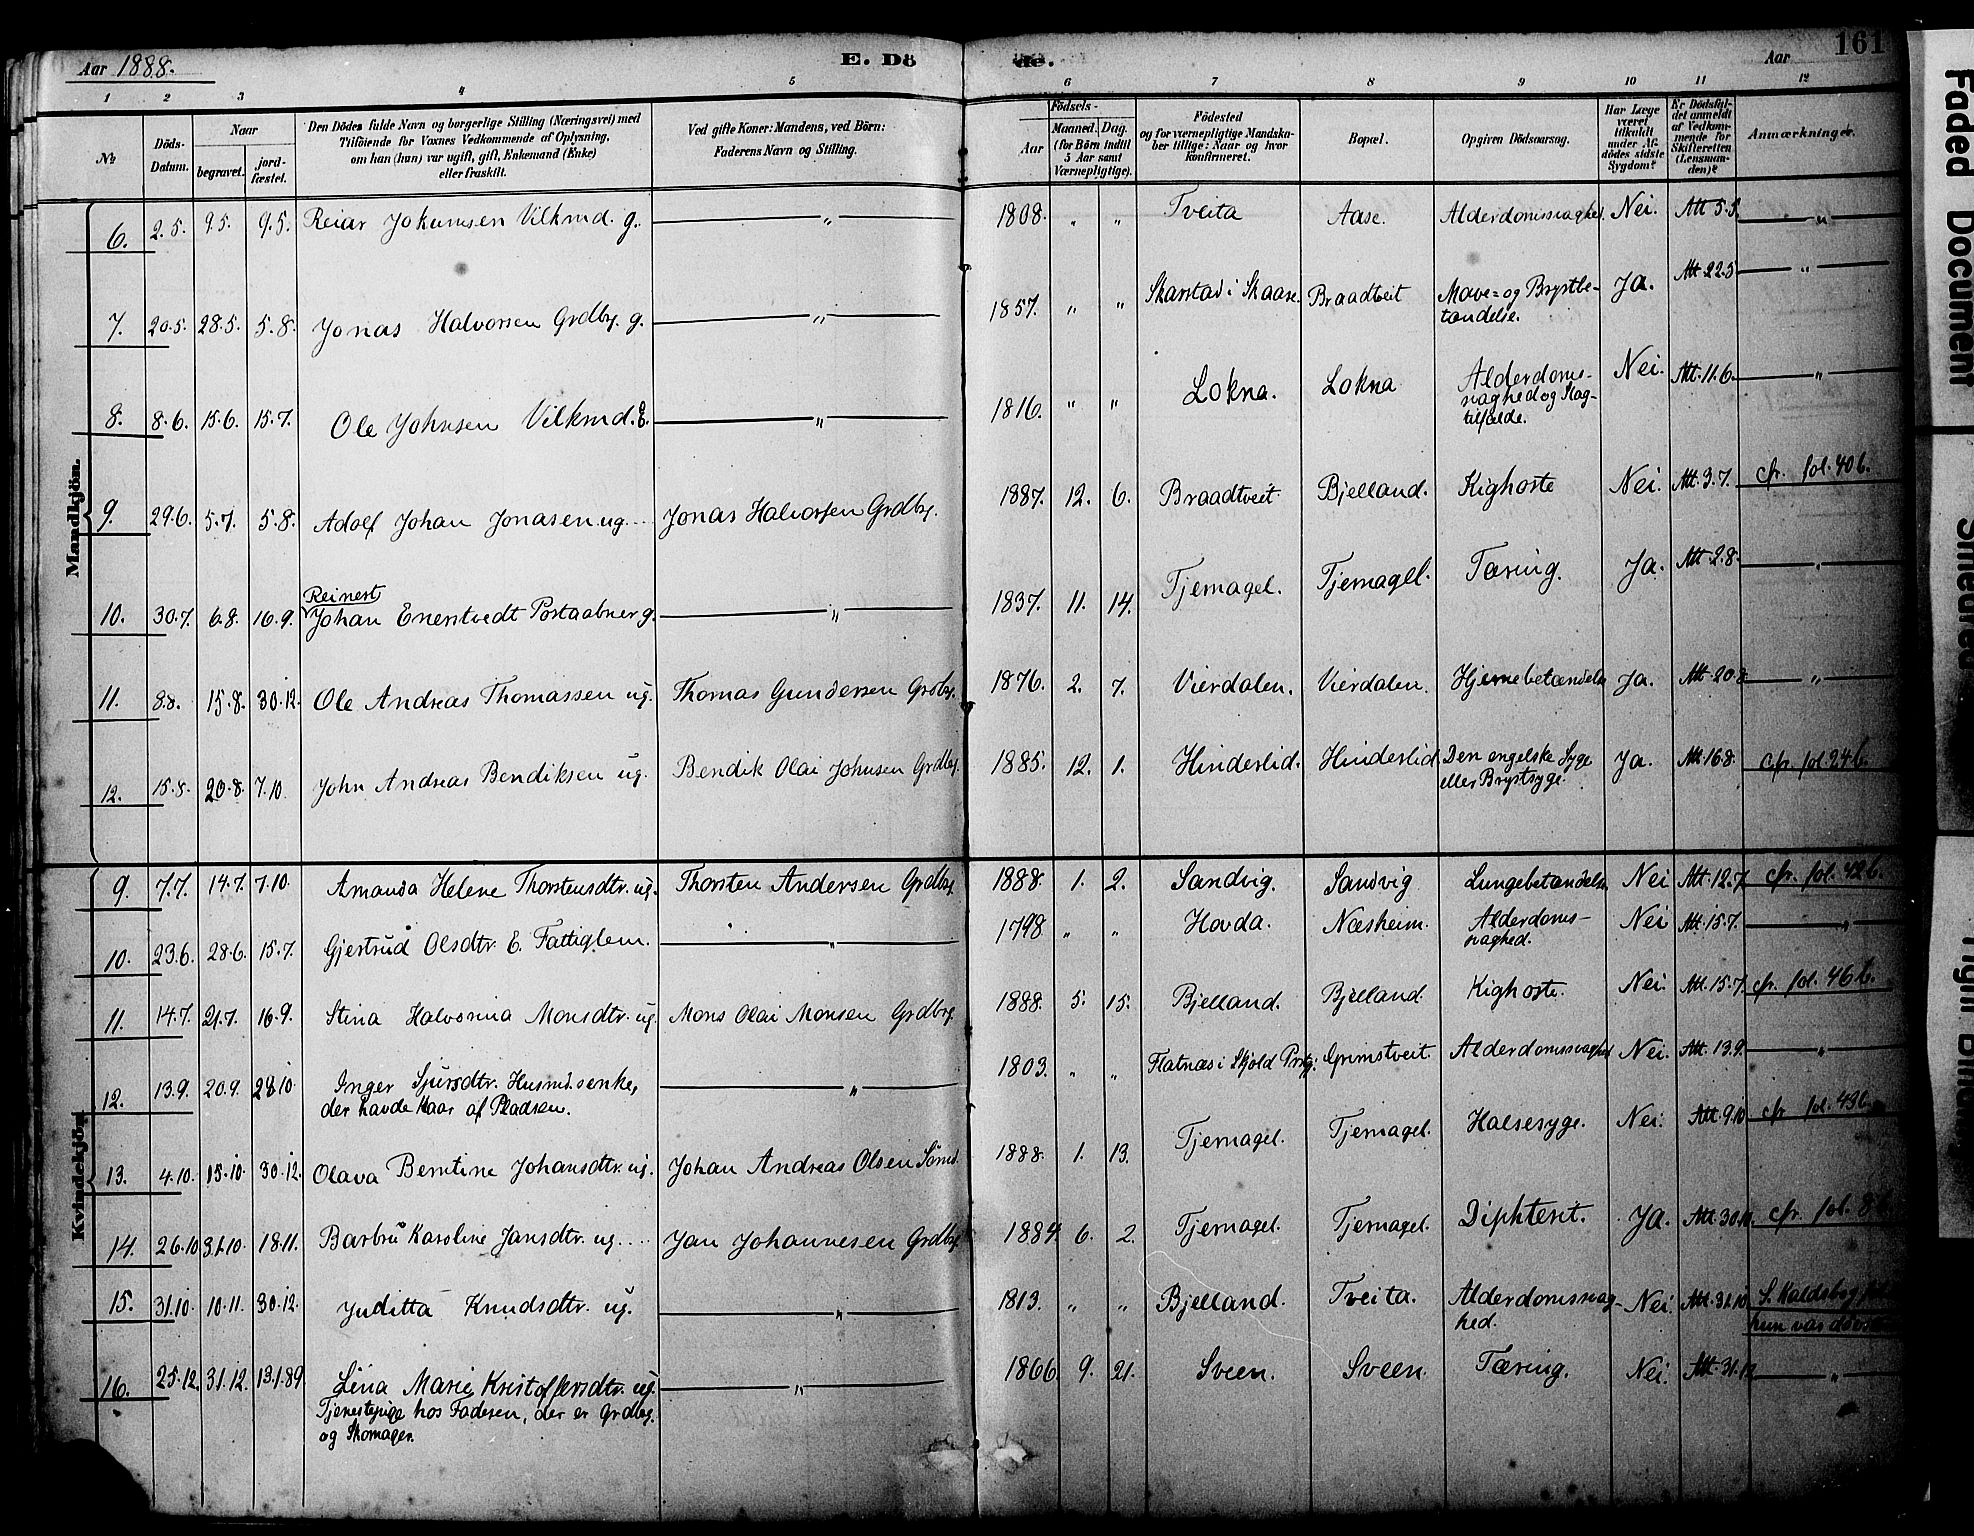 Aar 1888.
E. Dö
de.
Aar
161
1 2 3 4 5 6 7 8 9 10 11 12
№
Döds-
Datum.
Naar
begravet.
jord-
fæstet.
Den Dödes fulde Navn og borgerlige Stilling (Næringsvei) med
Tilföiende for Voxnes Vedkommende af Oplysning,
om han (hun) var ugift, gift, Enkemand (Enke)
eller fraskilt.
Ved gifte Koner: Mandens, ved Börn:
Faderens Navn og Stilling.
Födsels-
Aar
Maaned.
Dag.
(for Börn indtil
5 Aar samt
Værnepligtige).
Födested
og for værnepligtige Mandska-
ber tillige: Naar og hvor
konfirmeret.
Bopæl.
Opgiven Dödsaarsag.
Har Læge
været
tilkaldt
under Af-
dödes sidste
Sygdom?
Er Dödsfal-
det anmeldt
af Vedkom-
mende for
Skifteretten
(Lensman-
den)?
Anmærkninger.
Mandkjön.
6. 2.5. 9.5. 9.5. Reiar Jokumsen Vilkmd. g. " 1808. " " Tveita Aase. Alderdomssvaghed. Nei. Att 5.5. "
7. 20.5. 28.5. 5.8. Jonas Halvorsen Grdbr. g. " 1857. " " Skarstad i Skaare. Braadtveit Mave= og Brystbe-
tændelse. Ja. Att 22.5 "
8. 8.6. 15.6. 15.7. Ole Johnsen Vilkmd. E. " 1816. " " Lokna. Lokna Alderdoms-
svaghed og Slag-
tilfælde. Nei. Att. 11.6. "
9. 29.6. 5.7. 5.8. Adolf Johan Jonasen ug. Jonas Halvorsen Grdbr. 1887. 12. 6. Braadtveit Bjelland. Kighoste Nei. Att 3.7. cfr. fol. 40 b.
Reinert
10. 30.7. 6.8. 16.9. Johan Enerstvedt Postaabner g. " 1837. 11. 14. Tjernagel. Tjernagel. Tæring. Ja. Att 2.8. "
11. 8.8. 15.8. 30.12. Ole Andreas Thomassen ug. Thomas Gundersen Grdbr. 1876. 2. 7. Vierdalen. Vierdalen. Hjernebetændelse Ja. Att. 20.8 "
12. 15.8. 20.8. 7.10. John Andreas Bendiksen ug. Bendik Olai Johnsen Grdbr. 1885. 12. 1. Hinderlid. Hinderlid Den engelske Syge
eller Brystsyge. Ja. Att 16.8. cfr. fol. 24 b.
Kvindekjön
9. 7.7. 14.7. 7.10. Amanda Helene Thorstensdtr. ug. Thorsten Andersen Grdbr. 1888. 1. 2. Sandvig. Sandvig Lungebetændelse Nei Att. 12.7. cfr. fol. 42 b.
10. 23.6. 28.6. 15.7. Gjertrud Olsdtr. E. Fattiglem. " 1798 " " Hovda. Næsheim. Alderdoms-
svaghed. Nei Att. 15.7. "
11. 14.7. 21.7. 16.9. Stina Halvorina Monsdtr. ug. Mons Olai Monsen Grdbr. 1888. 5. 15. Bjelland. Bjelland. Kighoste. Nei. Att. 15.7. cfr. fol. 46 b.
12. 13.9. 20.9. 28.10. Inger Sjursdtr. Husmdsenke,
der havde Kaar af Pladsen. " 1803. " " Flatnæs i Skjold Prstg. Grimstveit. Alderdomssvaghed Nei. Att. 13.9. "
13. 4.10. 15.10. 30.12. Olava Berntine Johansdtr. ug. Johan Andreas Olsen 1888. 1. 13. Tjernagel. Tjernagel. Halsesyge. Nei. Att. 9.10. cfr. fol. 43 b.
14. 26.10. 31.10. 18.11. Barbru Karoline Jansdtr. ug. Jan Johannesen Grdbr. 1884. 6. 2. Tjernagel. Tjernagel. Diphterit. Ja. Att 30.10. cfr. fol. 8 b.
15. 31.10. 10.11. 30.12. Juditta Knudsdtr. ug. " 1813. " " Bjelland. Tveita. Alderdomssvag-
hed. Nei. Att. 31.10. hun var
16. 25.12. 31.12. 13.1.89 Lina Marie Kristoffersdtr. ug.
Tjenestepige hos Faderen, der er Grdbr.
og Skomager. " 1866. 9. 21. Sveen. Sveen. Tæring. Nei. Att 31.12. "
Faded Document
Smeared
Tight Binding